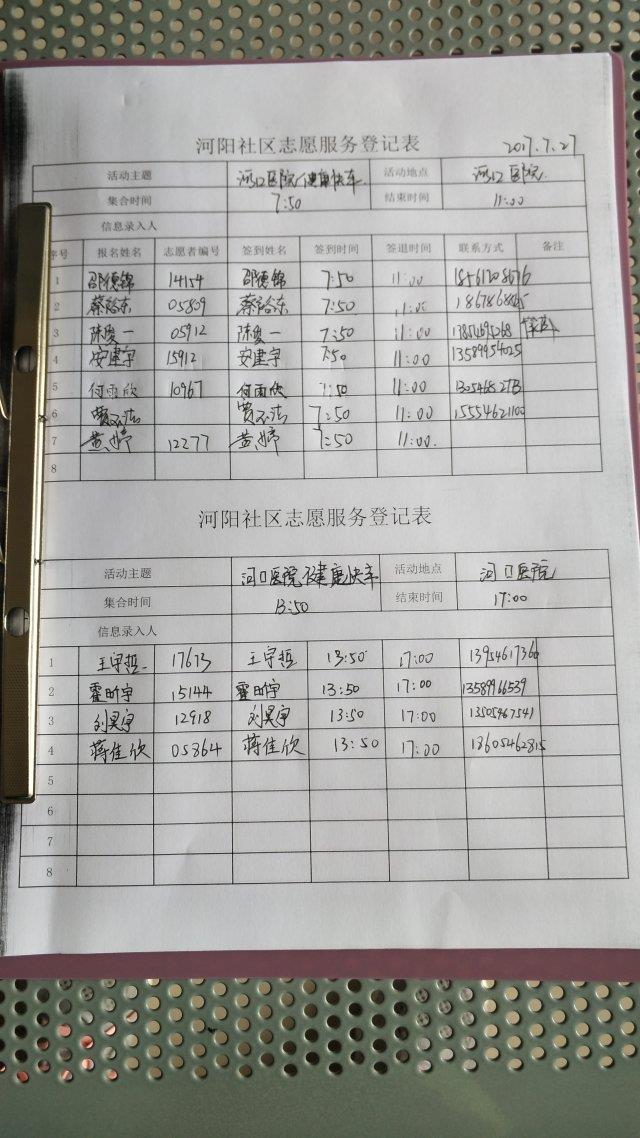 河阳社区志愿服务登记表 2017.7.27
活动主题 河口医院健康快车 活动地点 河口医院
集合时间 7:50 结束时间 11:00
信息录入人
序号 报名姓名 志愿者编号 签到姓名 签到时间 签退时间 联系方式 备注
1 邵德锦 14154 邵德锦 7:50 11:00
2 05809 7:50 11:00
3 陈俊一 05912 陈俊一 7:50 11:00
4 安建宇 15912 安建宇 7:50 11:00 13589954025
5 何雨欣 10967 何雨欣 7:50 11:00
6 7:50 11:00 15554621100
7 黄婷 12277 黄婷 7:50 11:00.
8
河阳社区志愿服务登记表
活动主题 河口医院健康快车 活动地点 河口医院
集合时间 13:50 结束时间 17:00
信息录入人
1 王守哲 17673 王守哲 13:50 17:00 13954617366
2 霍时宇 15144 霍时宇 13:50 17:00 13589966539
3 刘昊宇 12918 刘昊宇 13:50 17:00 13505467541
4 蒋佳欣 05864 蒋佳欣 13:50 17:00 13605462815
5
6
7
8